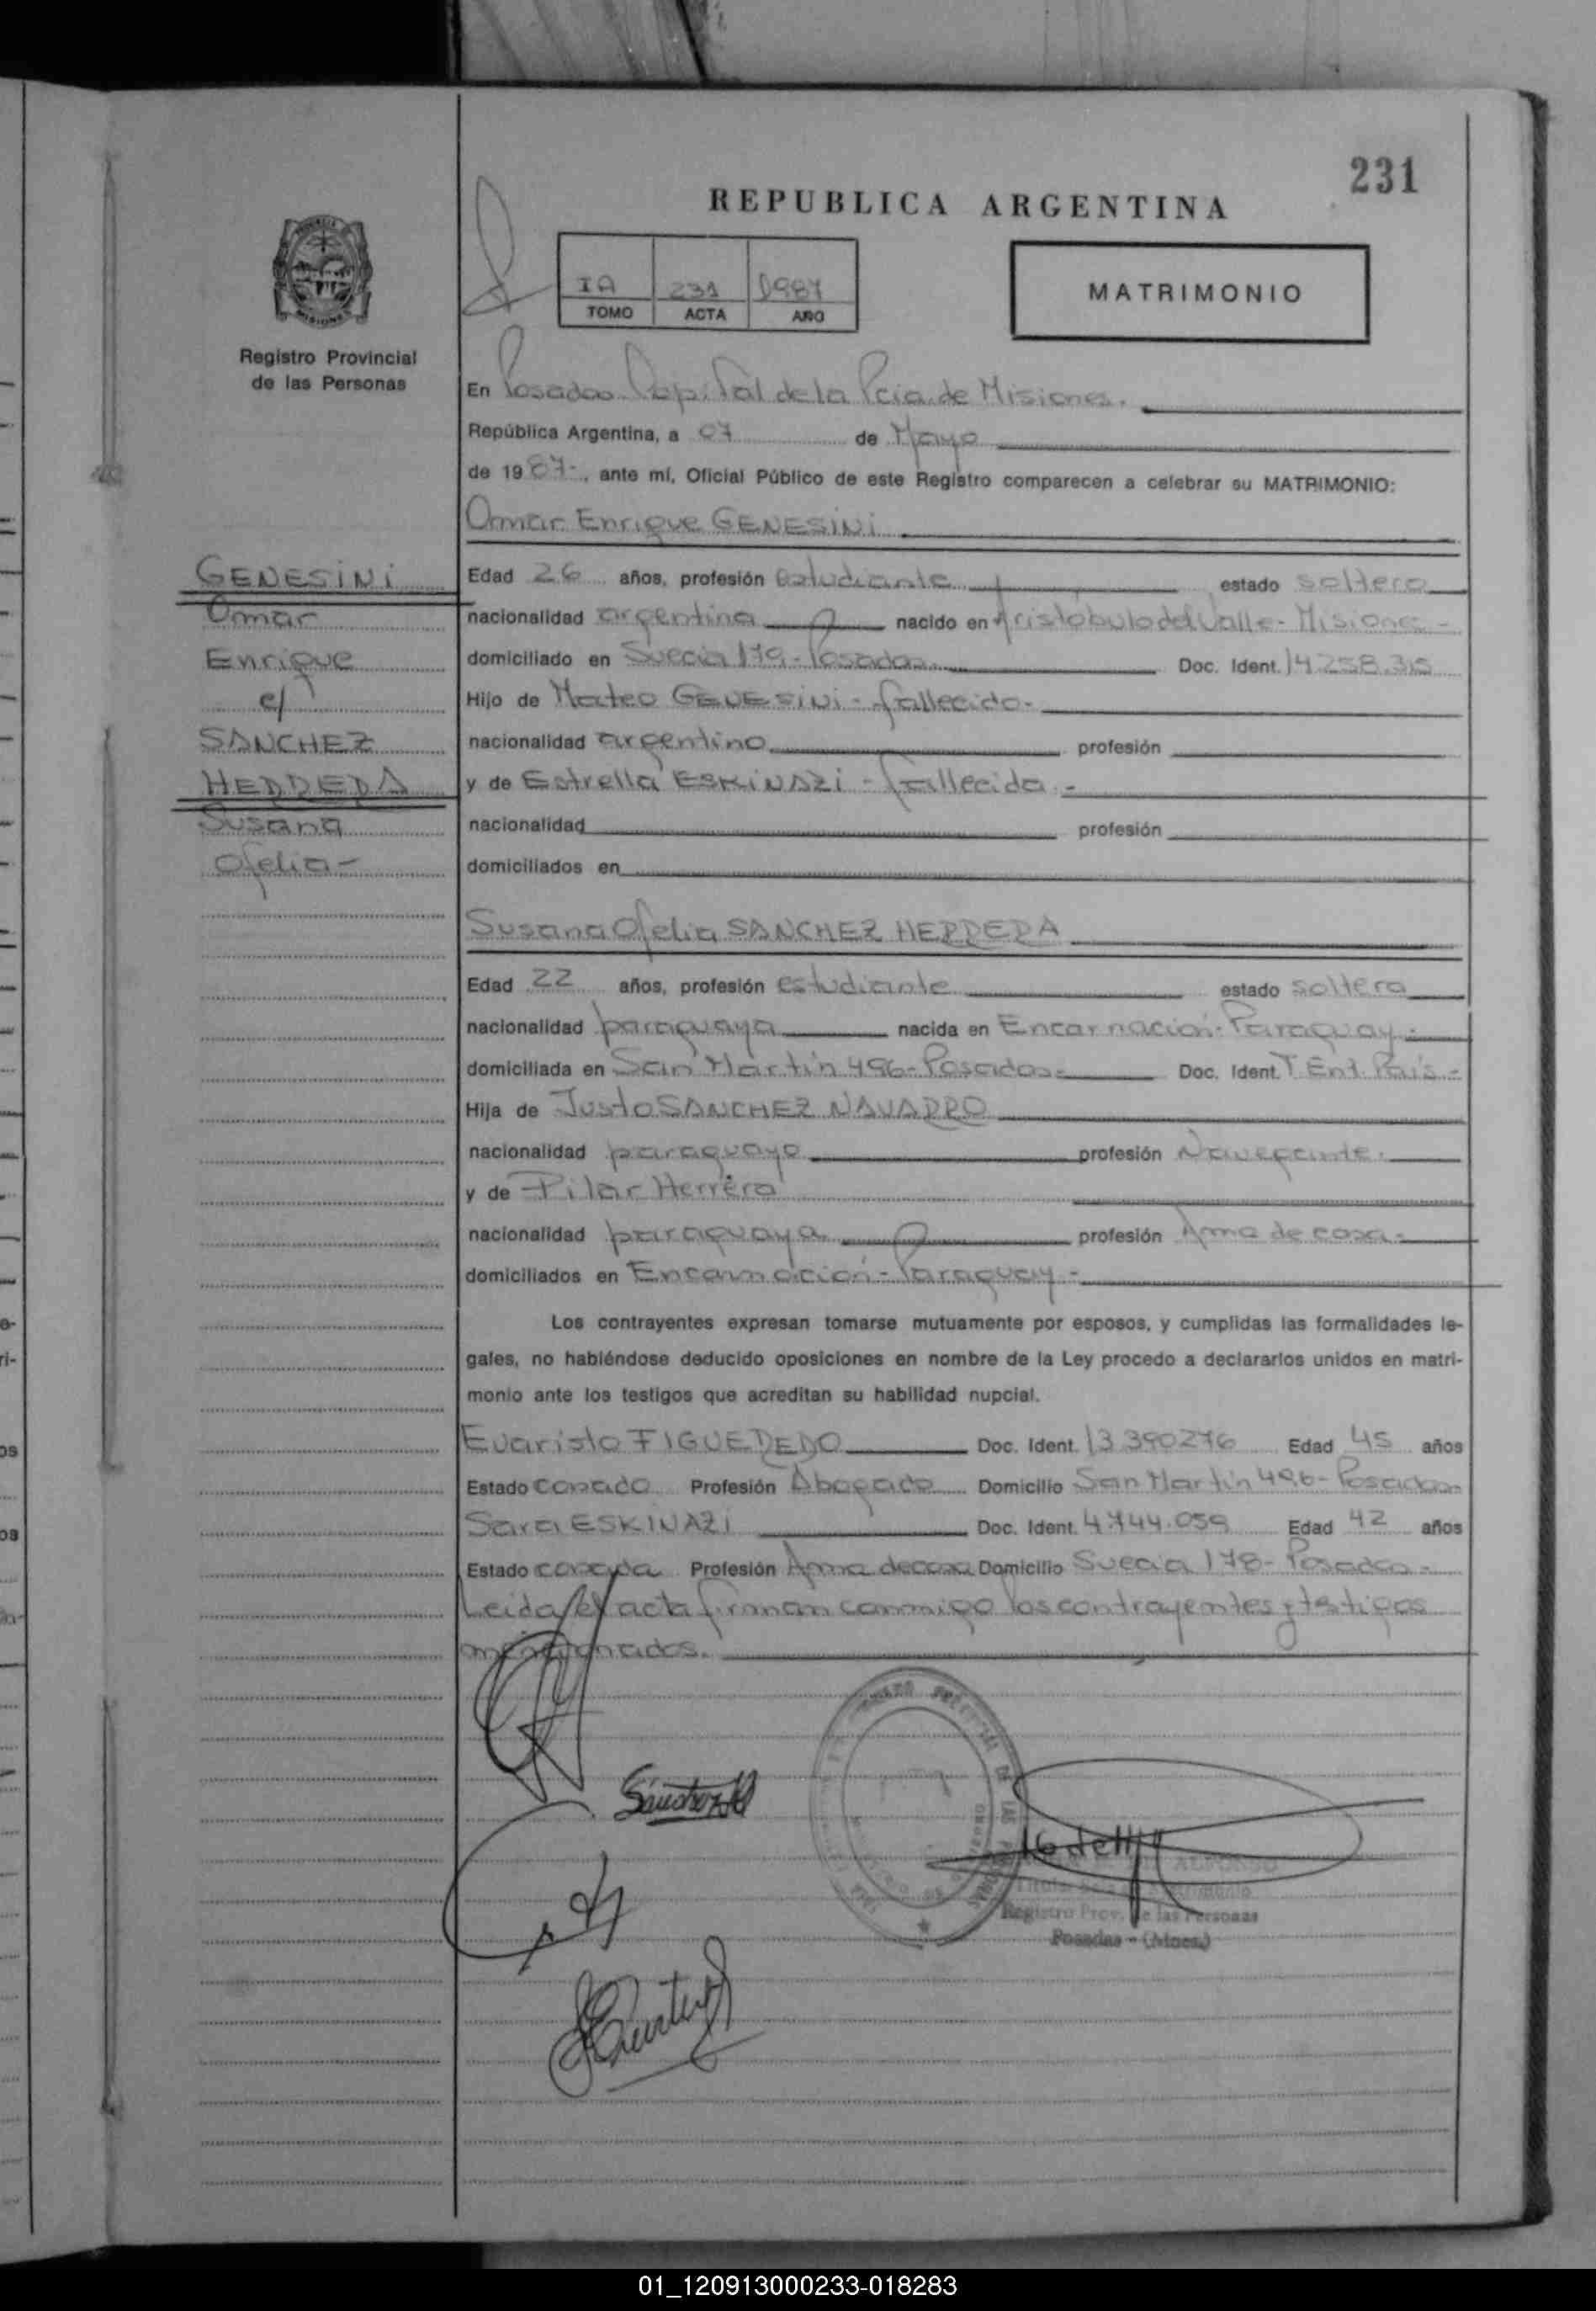 231
REPUBLICA ARGENTINA
IA 231 1987
TOMO ACTA AÑO
MATRIMONIO
MISIONES
Registro Provincial
de las Personas
En Posadas Capital de la Pcia de Misiones.
República Argentina, a 07 de Mayo
de 1987-, ante mí, Oficial Público de este Registro comparecen a celebrar su MATRIMONIO:
Omar Enrique GENESINI
GENESINI
Omar
Enrique
c/
SANCHEZ
HERRERA
Susana
Ofelia-
Edad 26 años, profesión estudiante estado soltero
nacionalidad argentina nacido en Aristobulo del Valle - Misiones -
domiciliado en Suecia 179 - Posadas Doc. Ident. 14.258.315
Hijo de Mateo GENESINI - fallecido -
nacionalidad argentino profesión
y de Estrella ESKINAZI - fallecida -
nacionalidad profesión
domiciliados en
Susana Ofelia SANCHEZ HERRERA
Edad 22 años, profesión estudiante estado soltera
nacionalidad paraguaya nacida en Encarnación - Paraguay -
domiciliada en San Martín 496 - Posadas - Doc. Ident. T. Ent. País -
Hija de Justo SANCHEZ NAVARRO
nacionalidad paraguayo profesión Navegante.
y de Pilar Herrera
nacionalidad paraguaya profesión Ama de casa -
domiciliados en Encarnación - Paraguay -
Los contrayentes expresan tomarse mutuamente por esposos, y cumplidas las formalidades le-
gales, no habiéndose deducido oposiciones en nombre de la Ley procedo a declararlos unidos en matri-
monio ante los testigos que acreditan su habilidad nupcial.
Evaristo FIGUEREDO Doc. Ident. 13.390276 Edad 45 años
Estado casado Profesión Abogado Domicilio San Martín 496 - Posadas
Sara ESKINAZI Doc. Ident. 4.744.059 Edad 42 años
Estado casada Profesión Ama de casa Domicilio Suecia 178 - Posadas -
Leida el acta firman conmigo los contrayentes y testigos
mencionados.
ALFONSO
Registro Prov. de las Personas
Posadas - (Mnes.)
01_120913000233-018283